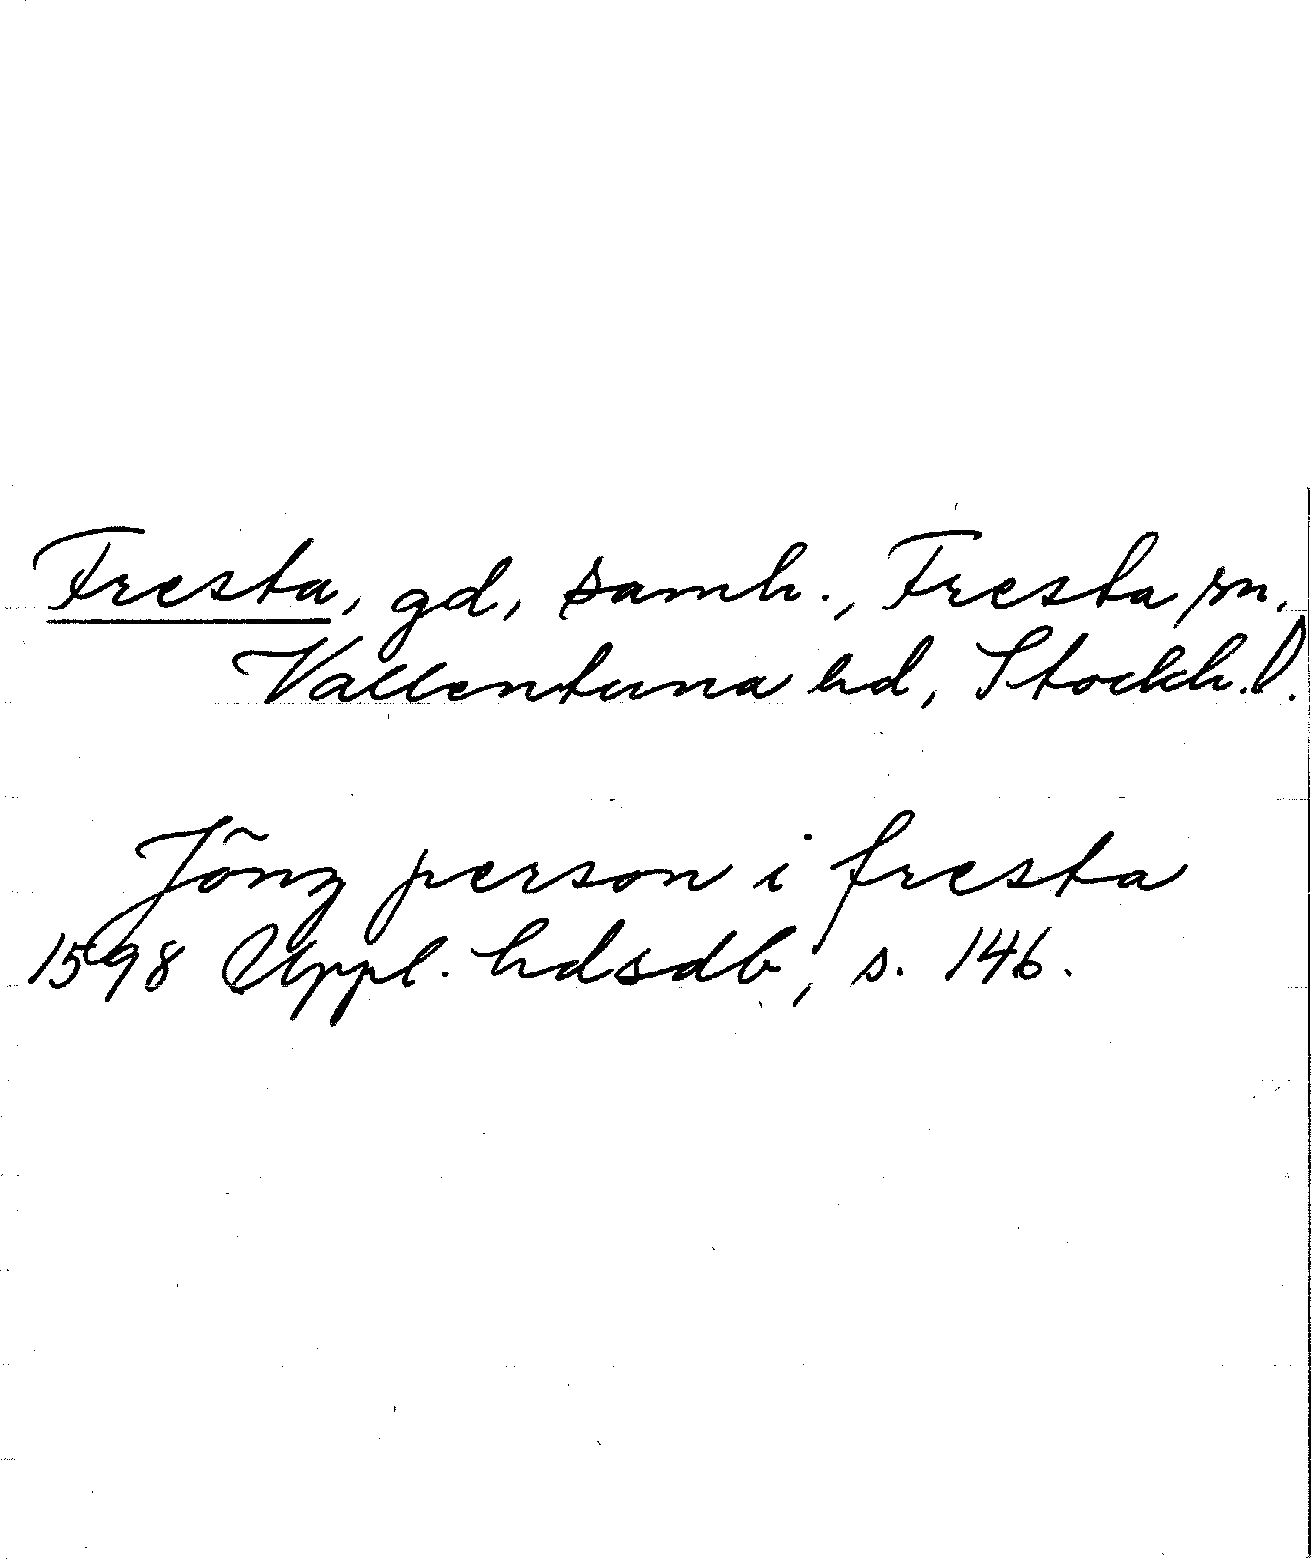 Fresta, gd, samh., Fresta sn,
Vallentuna hd, Stockh.l.
Jönz person i fresta
1598 Uppl. hdsdb, s. 146.